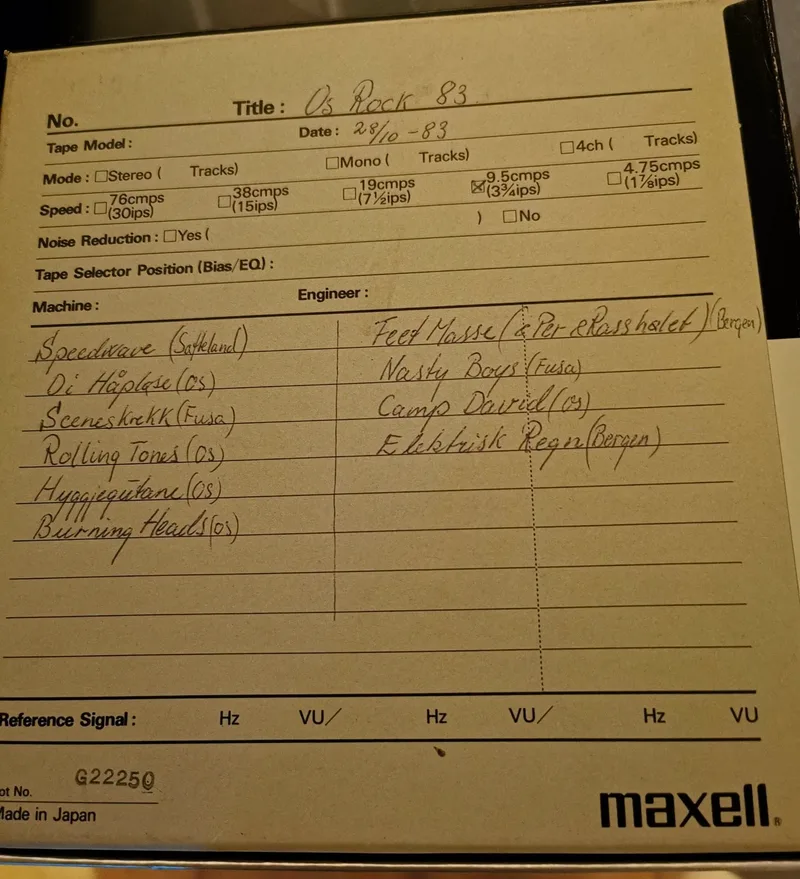 No. Title : Os Rock 83
Tape Model: Date : 28/10 -83
Mode : □Stereo ( Tracks) □Mono ( Tracks) □4ch ( Tracks)
Speed : □76cmps (30ips) □38cmps (15ips) □19cmps (7½ips) ☒9.5cmps (3¾ips) □4.75cmps (1⅞ips)
Noise Reduction : □Yes ( ) □No
Tape Selector Position (Bias/EQ) :
Machine : Engineer :
Speedwave (Søfteland)
Di Håpløse (Os)
Sceneskrekk (Fusa)
Rolling Tones (Os)
Hyggjegutane (Os)
Burning Heads (os)
Feet Masse (& Per & Rasshølet) (Bergen)
Nasty Boys (Fusa)
Camp David (os)
Elektrisk Regn (Bergen)
Reference Signal : Hz VU/ Hz VU/ Hz VU
ot No. G22250
Made in Japan
maxell®